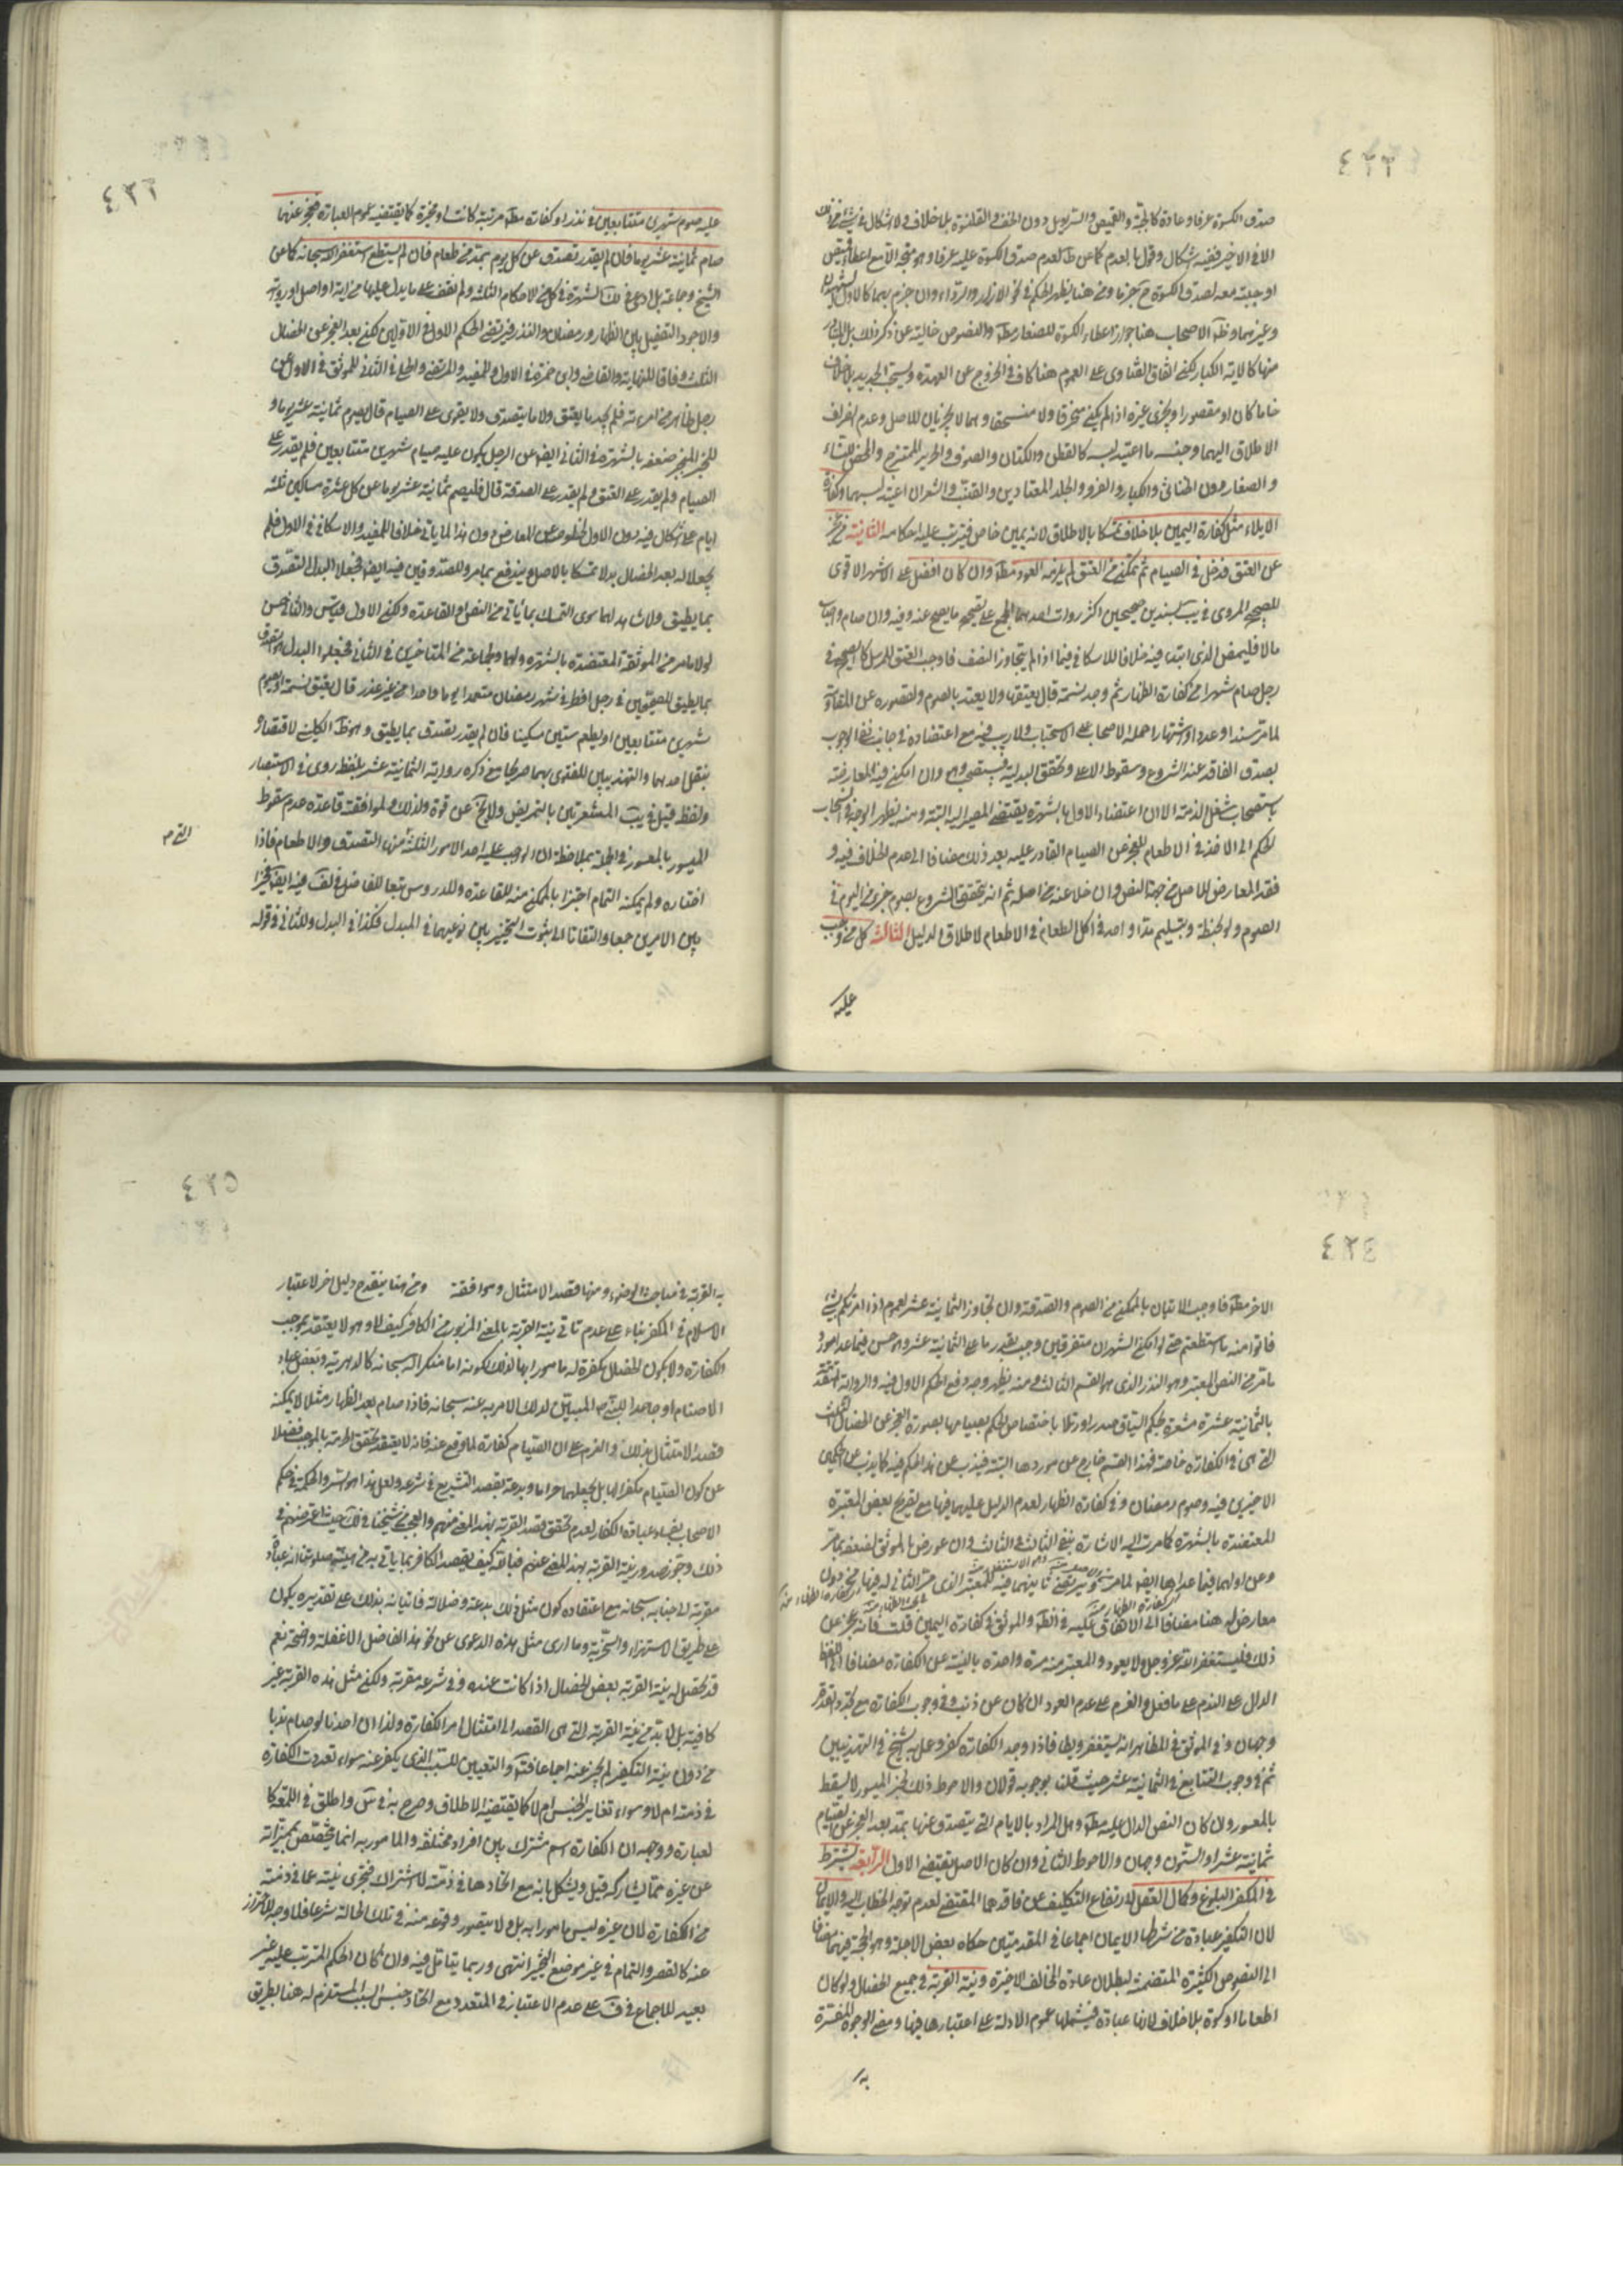 صدق الكسوة عرفا وعادة كالجبّة والقميص والسراويل دون الخف والقلنسوة بلا خلاف ولا اشكال في شيء من ذلك
الا في الاخير ففيه اشكال وقول بالعدم كما عن ظ لعدم صدق الكسوة عليه عرفا وهو متجه الا مع اعطاء قميص
او جبة معه لصدق الكسوة ح جزما ومن هنا يظهر الحكم في نحو الازار والرداء وان جزم بهما كالاول الشهيدان
وغيرهما وظ الاصحاب هنا جواز اعطاء الكسوة للصغار مط والنصوص خالية عن ذكر ذلك بل المتبادر
منها كالاية الكبار لكن اتفاق الفتاوى على العموم هنا كاف في الخروج عن العهدة ويستحب الجديد
خاما كان او مقصورا ويجزى غيره اذا لم يكن منخرقا ولا منسحقا وهما لا يجزيان للاصل وعدم انصراف
الاطلاق اليهما وجنسه ما اعتيد لبسه كالقطن والكتان والصوف والحرير الممتزج والمحض للنساء
والصغار دون الخناثى والكبار والفرو والجلد المعتادين والقنب والشعر ان اعتيد لبسهما وكفارة
الايلاء مثل كفارة اليمين بلا خلاف تمسكا بالاطلاق لانه يمين خاص فيترتب عليه احكامه الثانية من عجز
عن العتق فدخل في الصيام ثم تمكن من العتق لم يلزمه العود مط وان كان افضل على الاشهر الاقوى
للصحيح المروى في يب بسندين صحيحين اكثر روات احدهما المجمع على تصحيح ما يصح عنه وفيه وان صام واصاب
مالا فليمض الذى ابتدء فيه خلافا للاسكافى فيما اذا لم يتجاوز النصف فاوجب العتق للمرسل كالصحيح في
رجل صام شهرا من كفارة الظهار ثم وجد نسمة قال يعتقها ولا يعتد بالصوم ولقصوره عن المقاومة
لما مر سندا وعددا واشتهارا حمله الاصحاب على الاستحباب ولا ريب فيه مع اعتضاده في جانب نفى الوجوب
بصدق الفاقد عند الشروع وسقوط الاعلى وتحقق البدلية فيستصحب وهو وان امكن فيه المعارضة
باستصحاب شغل الذمة الا ان اعتضاد الاول بالشهرة يقتضى المصير اليه البتة ومنه يظهر الوجه في انسحاب
الحكم الى الاخذ في الاطعام للعجز عن الصيام القادر عليه بعد ذلك مضافا الى عدم الخلاف فيه و
فقد المعارض للاصل من جهة النص وان خلا عنه من اصله ثم انه يتحقق الشروع بصوم جزء من اليوم في
الصوم ولو لحظة وبتسليم مد او احد في اكل الطعام في الاطعام لاطلاق الدليل الثالثة كل من وجب
عليه
عليه صوم شهرين متتابعين في نذر او كفارة مط مرتبة كانت او مخيرة كما يقتضيه عموم العبارة فعجز عنهما
صام ثمانية عشر يوما فان لم يقدر تصدق عن كل يوم بمد من طعام فان لم يستطع استغفر الله سبحانه كما عن
الشيخ وجماعة بل ادعى في لك الشهرة في كل من الاحكام الثلثة ولم نقف على ما يدل عليها من اية او اصل او رواية
والاجود التفصيل بين الظهار ورمضان والنذر فيرتضى الحكم الاول في الاولين لكن بعد العجز عن الخصال
الثلث وفاقا للنهاية والقاضى وابن حمزة في الاول وللمفيد والمرتضى والحلى في الثانى للموثق في الاول عن
رجل ظاهر من امرءته فلم يجد ما يعتق ولا ما يتصدق ولا يقوى على الصيام قال يصوم ثمانية عشر يوما و
للخبر المنجبر ضعفه بالشهرة في الثانى ايض عن الرجل يكون عليه صيام شهرين متتابعين فلم يقدر على
الصيام ولم يقدر على العتق ولم يقدر على الصدقة قال فليصم ثمانية عشر يوما عن كل عشرة مساكين ثلثة
ايام على اشكال فيه دون الاول لخلوصه عن المعارض دون هذا لما ياتى خلافا للمفيد والاسكافى في الاول فلم
يجعلا له بعد الخصال بدلا تمسكا بالاصل ويندفع بما مر وللصدوقين فيه ايض فجعلا البدل التصدق
بما يطيق ولا شاهد لهما سوى التمسك بما ياتى من النص او القاعدة ولكن الاول قياس والثانى حسن
لولا ما مر من الموثقة المعتضدة بالشهرة ولهما ولجماعة من المتاخرين في الثانى فجعلوا البدل التصدق
بما يطيق للصحيحين في رجل افطر في شهر رمضان متعمدا يوما واحدا من غير عذر قال يعتق نسمة او يصوم
شهرين متتابعين او يطعم ستين مسكينا فان لم يقدر تصدق بما يطيق وهو ظ الكلينى لاقتصاره
بنقل احدهما والتهذيبين للفتوى بهما صريحا مع ذكره رواية الثمانية عشر بلفظ روى في الاستبصار
ولفظ قيل في يب المشعرتين بالتمريض ولا يخ عن قوة ولذلك ولموافقة قاعدة عدم سقوط
الميسور بالمعسور في الجملة بملاحظة ان الواجب عليه احد الامور الثلثة منها التصدق والاطعام فاذا
اختاره ولم يمكنه التمام اجتزأ بالممكن منه للقاعدة وللدروس تبعا للفاضل في لف فيه ايض مخيرا
بين الامرين جمعا والتفاتا الى ثبوت التخيير بين نوعيهما في المبدل فكذا في البدل وللثانى في قوله
الاخر مط فاوجب الاتيان بالممكن من الصوم والصدقة وان تجاوز الثمانية عشر لعموم اذا امرتكم بشىء
فاتوا منه ما استطعتم حتى لو امكن الشهران متفرقين وجب بقدر ما على الثمانية عشر وهو حسن فيما عدا مورد
ما مر من النص المعتبر وهو النذر الذى هو القسم الثالث ومنه يظهر وجه دفع الحكم الاول فيه والرواية المتقدمة
بالثمانية عشرة مشعرة بحكم السياق صدرا وذيلا باختصاص الحكم بصيامها بصورة العجز عن الخصال الثلث
التى هى في الكفارة خاصة فهذا القسم خارج عن موردها البتة فيذب عن هذا الحكم فيه كما يذب عن الحكمين
الاخيرين فيه وصوم رمضان وفي كفارة الظهار لعدم الدليل عليهما فيها مع تصريح بعض المعتبرة
المعتضدة بالشهرة كما مرت اليه الاشارة بنفى الثالث في الثالث وان عورض بالموثق لضعفه بما مر
وعن اولهما فيما عداها ايض لما مر ويرتضى ثانيهما فيه للمعتبر الذى مر الثانى له فيها من دون
معارض له هنا مضافا الى الاتفاق عليه في الظ والموثق في كفارة اليمين قلت فانه عجز عن
ذلك فليستغفر الله عز وجل ولا يعود والمعتبر منه مرة واحدة بالنية عن الكفارة مضافا الى اللفظ
الدال على الندم على ما فعل والعزم على عدم العود ان كان عن ذنب وفي وجوب الكفارة مع تجدد القدرة
وجهان وفي الموثق في المظاهر انه يستغفر ويطا فاذا وجد الكفارة كفر وعمل به الشيخ في التهذيبين
ثم في وجوب التتابع في الثمانية عشر حيث قلنا بوجوبه قولان والاحوط ذلك لخبر الميسور لا يسقط
بالمعسور وان كان النص الدال عليه مط وهل المراد بالايام التى يتصدق عنها بمد بعد العجز عن الصيام
ثمانية عشر او الستون وجهان والاحوط الثانى وان كان الاصل يقتضى الاول الرابعة يشترط
في المكفر البلوغ وكمال العقل لارتفاع التكليف عن فاقدهما المقتضى لعدم توجه الخطاب اليه والايمان
لان التكفير عبادة من شرطها الايمان اجماعا في المقدمتين حكاه بعض الاجلة وهو الحجة فيهما مضافا
الى النصوص الكثيرة المتضمنة لبطلان عبادة المخالف الاخيرة ونية القربة في جميع الخصال ولو كان
اطعاما او كسوة بلا خلاف لانها عبادة فيشملها عموم الادلة على اعتبارها فيها ومضى الوجوه المفسرة
به
به القربة في مباحث الوضوء ومنها قصد الامتثال وموافقة ومن هنا ينقدح دليل اخر لاعتبار
الاسلام في المكفر بناء على عدم تاتى نية القربة بالمعنى المزبور من الكافر كيف لا وهو لا يعتقد بموجب
الكفارة ولا بكون الخصال مكفرة له مامورا بها لذلك لكونه اما منكرا لله سبحانه كالدهرية وبعض عباد
الاصنام او جاحدا للنبى ص المبين لدلك الامر به عنه سبحانه فاذا صام بعد الظهار مثلا لا يمكنه
قصد الامتثال بذلك والعزم على ان الصيام كفارة لما وقع عنه فانه لا يعتقد تحقق الحرمة بالموجب فضلا
عن كون الصيام مكفرا لها بل يجعلهما حراما وبدعة بقصد التشريع في شرعه ولعل هذا هو السر والحكمة في حكم
الاصحاب بفساد عبادة الكفار لعدم تحقق قصد القربة بهذا المعنى منهم والعجب من شيخنا في لك حيث اعترضهم في
ذلك وجوز صدور نية القربة بهذا المعنى عنهم
مقربة الى جنابه سبحانه مع اعتقاده كون مثل ذلك بدعة وضلالة فاتيانه بذلك على تقديره يكون
على طريق الاستهزاء والسخرية وما ارى مثل هذه الدعوى عن نحو هذا الفاضل الا غفلة واضحة نعم
قد تحصل له نية القربة ببعض الخصال اذا كانت عنده وفي شرعه مقربة ولكن مثل هذه القربة غير
كافية بل لا بد من نية القربة التى هى القصد الى امتثال امر الكفارة ولذا ان احدنا لو صام ندبا
من دون نية التكفير لم يجز عنه اجماعا فتامل والتعيين للسبب الذى يكفر عنه سواء تعددت الكفارة
في ذمته ام لا وسواء تغاير الجنس ام لا كما يقتضيه الاطلاق وصرح به في س واطلق في اللمعة كا
لعبارة ووجهه ان الكفارة اسم مشترك بين افراد مختلفة والمامور به انما يتخصص بمميزاته
عن غيره مما يشاركه قيل ويشكل بانه مع اتحادها في ذمته لا اشتراك فتجزى نيته عما في ذمته
من الكفارة لان غيره ليس مامورا به بل ولا يتصور وقوعه منه في تلك الحالة شرعا فلا وجه للاحتراز
عنه كالقصر والتمام في غير موضع التخيير انتهى وربما يتامل فيه وان كان الحكم المترتب عليه غير
بعيد للاجماع في ف على عدم الاعتبار في المتعدد مع اتحاد جنس السبب المستلزم له هنا بطريق